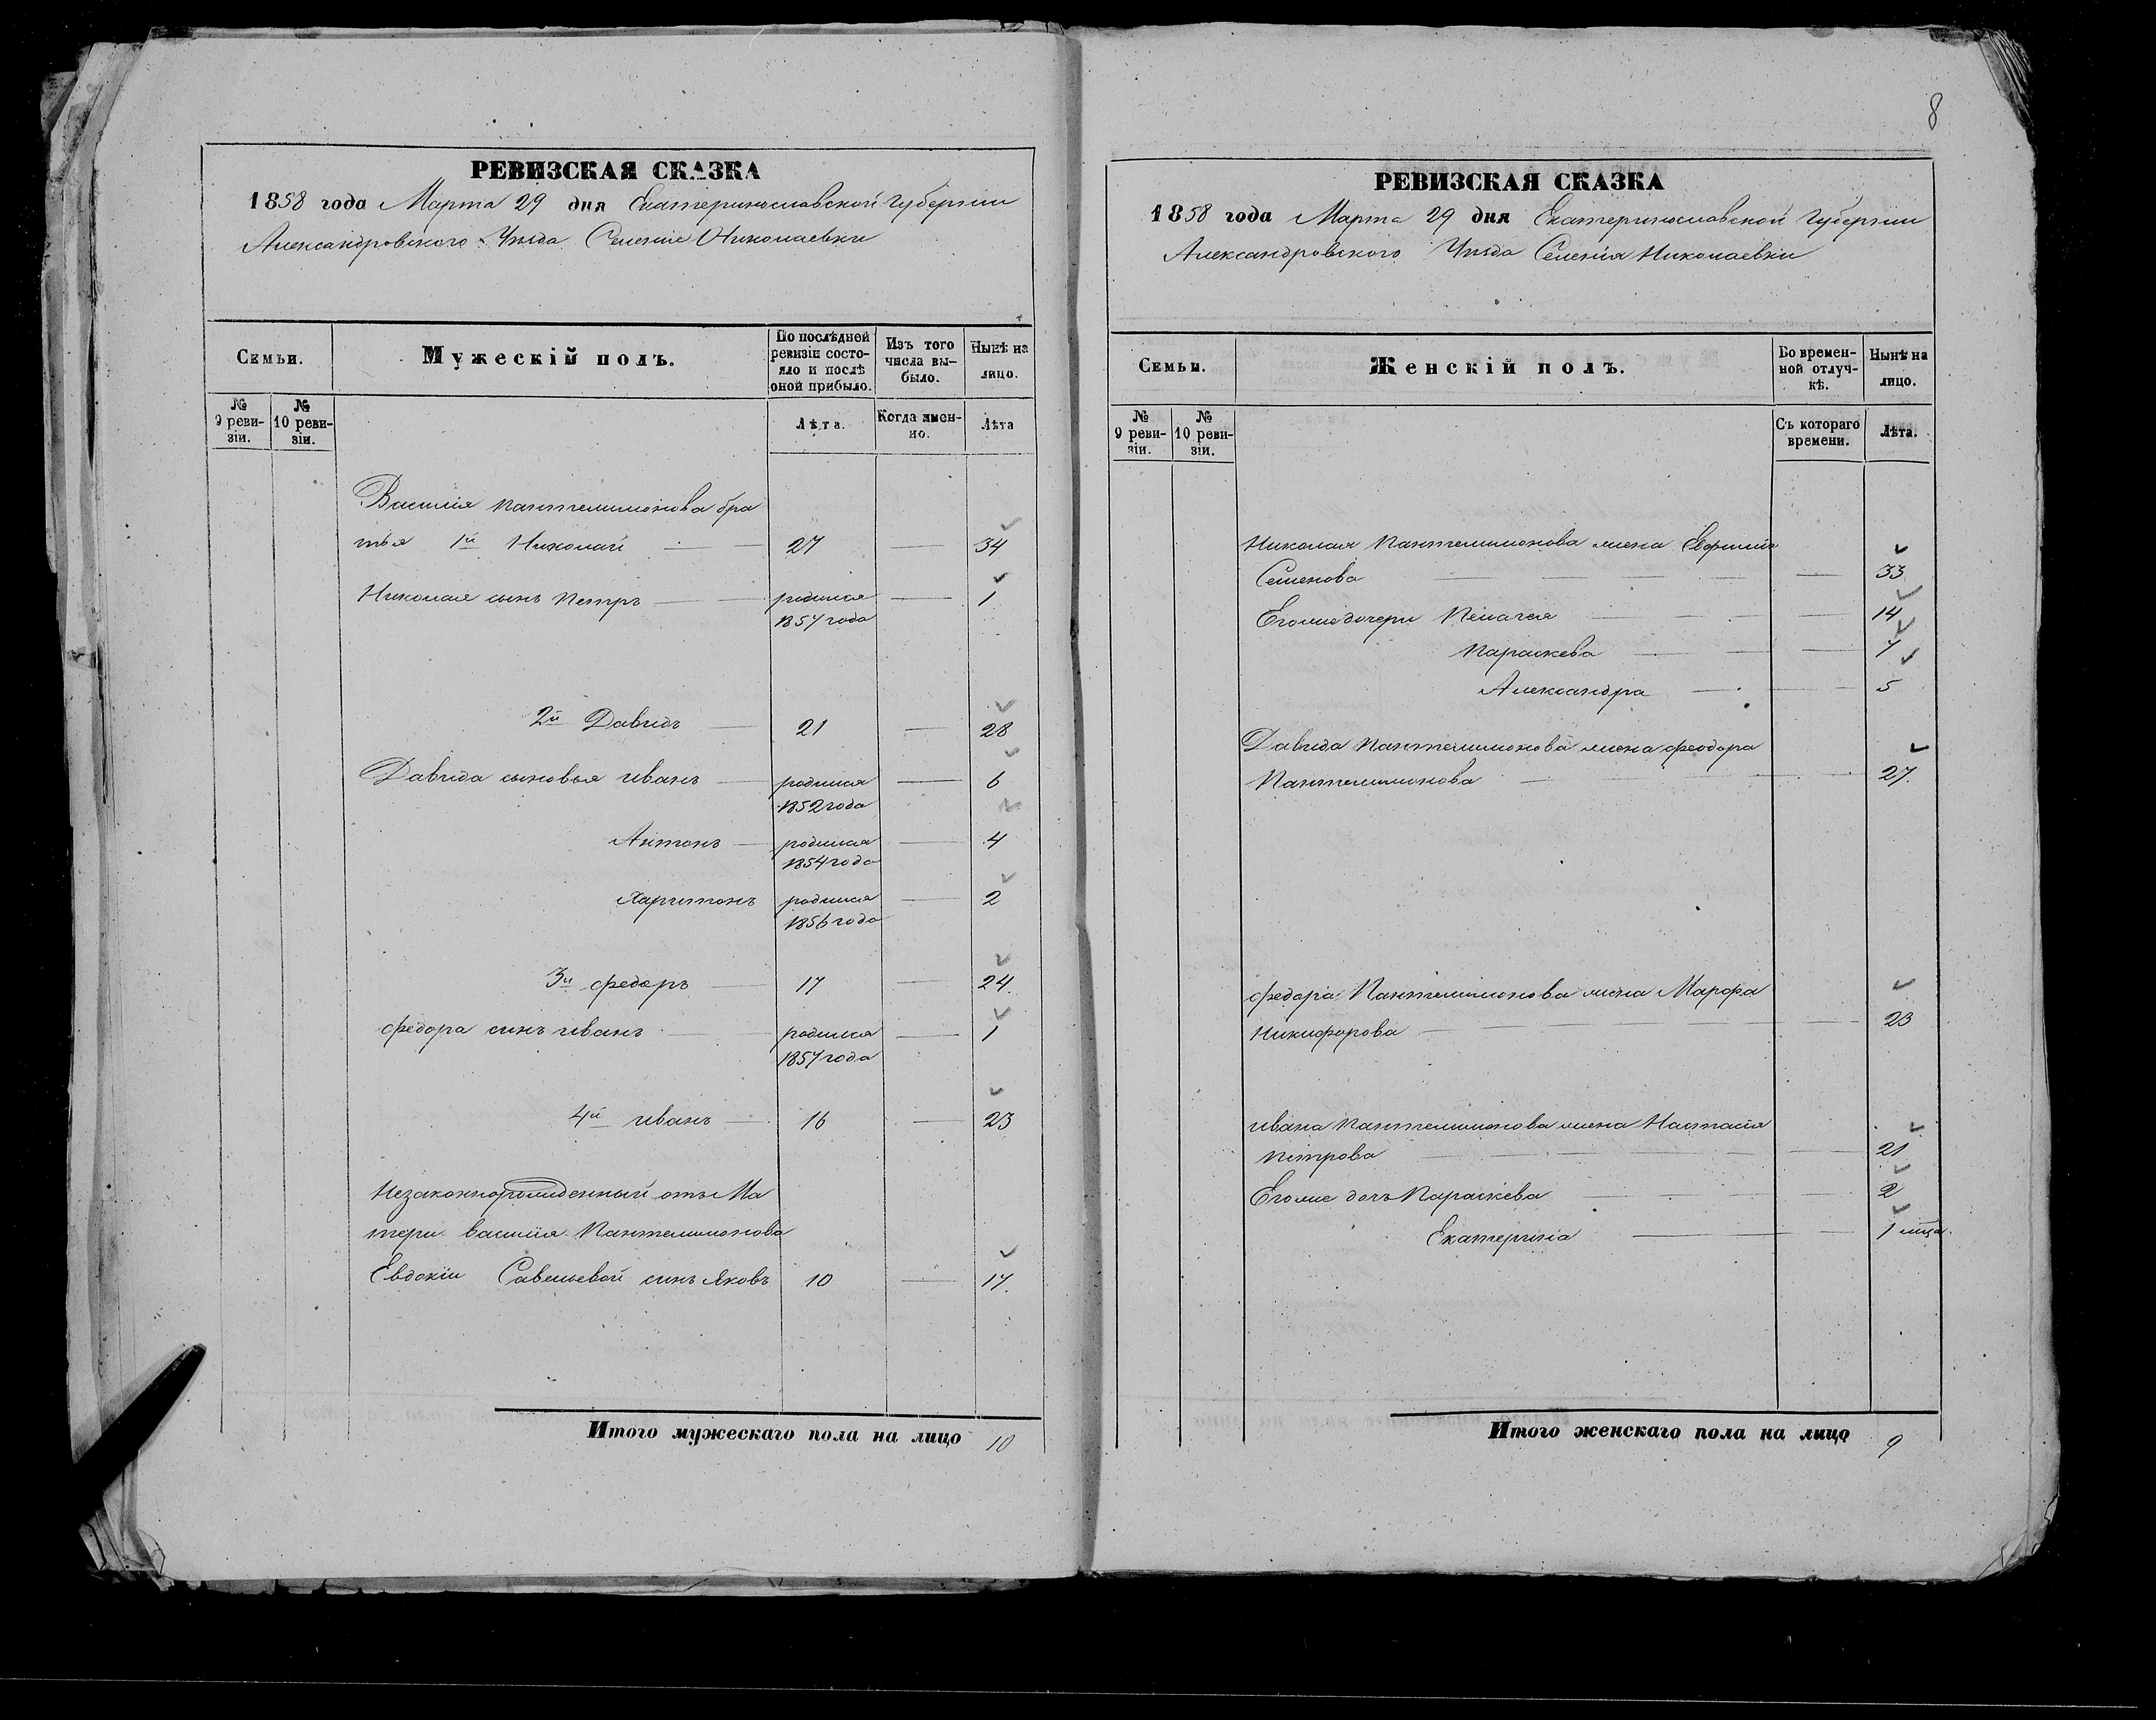 РЕВИЗСКАЯ СКАЗКА
1858 года Марта 29 дня Екатеринославской Губернии
Александровского Уезда Селение Николаевки
Семьи.
Мужескій полъ.
По послѣдней ревизіи состояло и послѣ оной прибыло.
Изъ того числа выбыло.
Нынѣ на лицо.
№ 9 ревизіи.
№ 10 ревизіи.
Лѣта.
Когда именно.
Лѣта
Василія Пантелимонова бра
тья 1й Николай 27 34
Николая сынъ Петръ родился 1
1857 года
2й Давидъ 21 28
Давида сыновья иванъ родился 6
1852 года
Антонъ родился 4
1854 года
Харитонъ родился 2
1856 года
3й федоръ 17 24
федора синъ иванъ родился 1
1857 года
4й иванъ 16 23
Незаконнорожденный отъ Ма
тери василія Пантелимонова
Евдокіи Савельевой синъ Яковъ 10 17
Итого мужескаго пола на лицо 10
8
РЕВИЗСКАЯ СКАЗКА
1858 года Марта 29 дня Екатеринославской Губернии
Александровского Уезда Селенія Николаевки
Семьи.
Женскій полъ.
Во временной отлучкѣ.
Нынѣ на лицо.
№ 9 ревизіи.
№ 10 ревизіи.
Съ котораго времени.
Лѣта.
Николая Пантелимонова жена Ефимія
Семенова 33
Егоже дочери Пелагея 14
Параскева 7
Александра 5
Давида Пантелимонова жена феодора
Пантелимонова 27
федора Пантелимонова жена Марфа
Никифорова 23
ивана Пантелимонова жена Настасія
Петрова 21
Егоже дочь Параскева 2
Екатерина 1 мца.
Итого женскаго пола на лицо 9